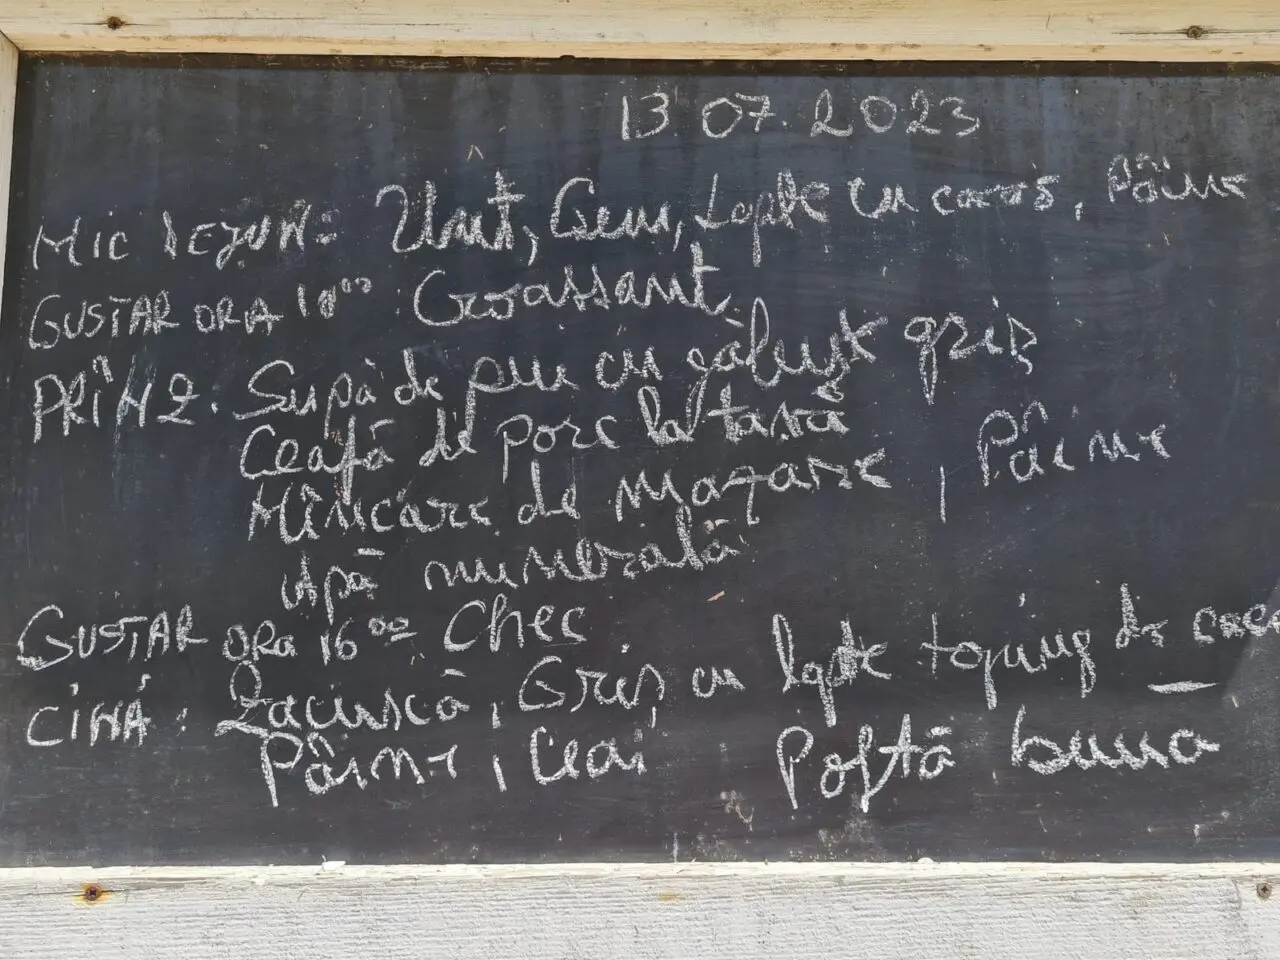 13 07. 2023
MIC DEJUN: Unt, Gem, Lapte cu cacao, Pâine
GUSTAR ORA 10⁰⁰: Croassant
PRÎNZ. Supă de pui cu găluște griș
Ceafă de porc la tavă
Mîncare de mazare, Pâine
Apă minerală
GUSTAR ORA 16⁰⁰ Chec
CINĂ: Zacuscă, Griș cu lapte toping de
Pâine, Ceai Poftă buna